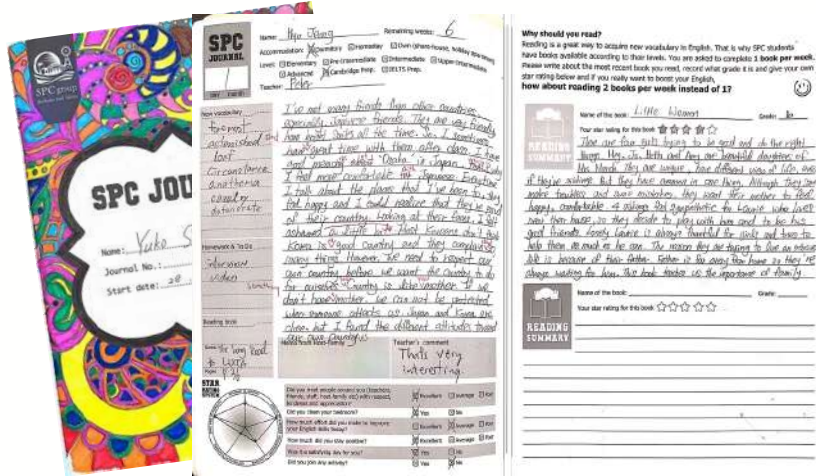 SPC group
SPC JOU
Name: Yuko S
Journal No.:
Start date: 28
SPC
JOURNAL
day month
Name: Hyo Jeong Remaining weeks: 6
Accommodation: Dormitory Homestay Own (share-house, holiday apartment)
Level: Elementary Pre-Intermediate Intermediate Upper-Intermediate
Advanced Cambridge Prep. IELTS Prep.
Teacher: Peter
New vocabulary
torment
astonished
lost
Circumstance
anathema
deteriorate
Homework & To Do
interview
video
Reading book
I've met many friends from other countries
especially Japanese friends. They are very friendly
have smiles all the time. So, I sometimes
have great time with them after class. I have
good memory about "Osaka" in Japan.
I feel more comfortable Japanese. Everytime
I talk about the places that I've been to, they
feel happy and I could realize that they're proud
of their country. Looking at their faces, I felt
ashamed a little bit. Most Koreans don't think
Korea is good country and they complain
many things. However, We need to respect our
own country before we want the country to do
for ourselves. Country is like mother. If we
don't have mother, we can not be protected
when someone attacks us. Japan and Korea are
close but I found the different attitudes toward
our own country.
Notes from Host-Family
Teacher's comment
That's very
interesting.
STAR
RATING
SYSTEM
Did you treat people around you (teachers,
friends, staff, host-family etc) with respect,
kindness and appreciation? Excellent Average Poor
Did you clean your bedroom? Yes No
How much effort did you make to improve
your English skills today? Excellent Average Poor
How much did you stay positive? Excellent Average Poor
Was it a satisfying day for you? Yes No
Did you join any activity? Yes No
Why should you read?
Reading is a great way to acquire new vocabulary in English. That is why SPC students
have books available according to their levels. You are asked to complete 1 book per week.
Please write about the most recent book you read, record what grade it is and give your own
star rating below and if you really want to boost your English,
how about reading 2 books per week instead of 1?
READING
SUMMARY
Name of the book: Little Women Grade: 6
Your star rating for this book
There are four girls trying to be good and do the right
things. Meg, Jo, Beth and Amy are beautiful daughters of
Mrs March. They are unique, have different view of life, even
if they're siblings. But they have common in one thing. Although they
make troubles and even mistakes, they want their mother to feel
happy, comfortable. 4 siblings feel sympathetic to Laurie who lives
next their house, so they decide to play with him and to be his
good friends. Lonely Laurie is always thankful for girls and tries to
help them as much as he can. The reason they are trying to live an
life is because of their father. Father is far away from home so they're
always waiting for him. This book teaches us the importance of family.
READING
SUMMARY
Name of the book: Grade:
Your star rating for this book